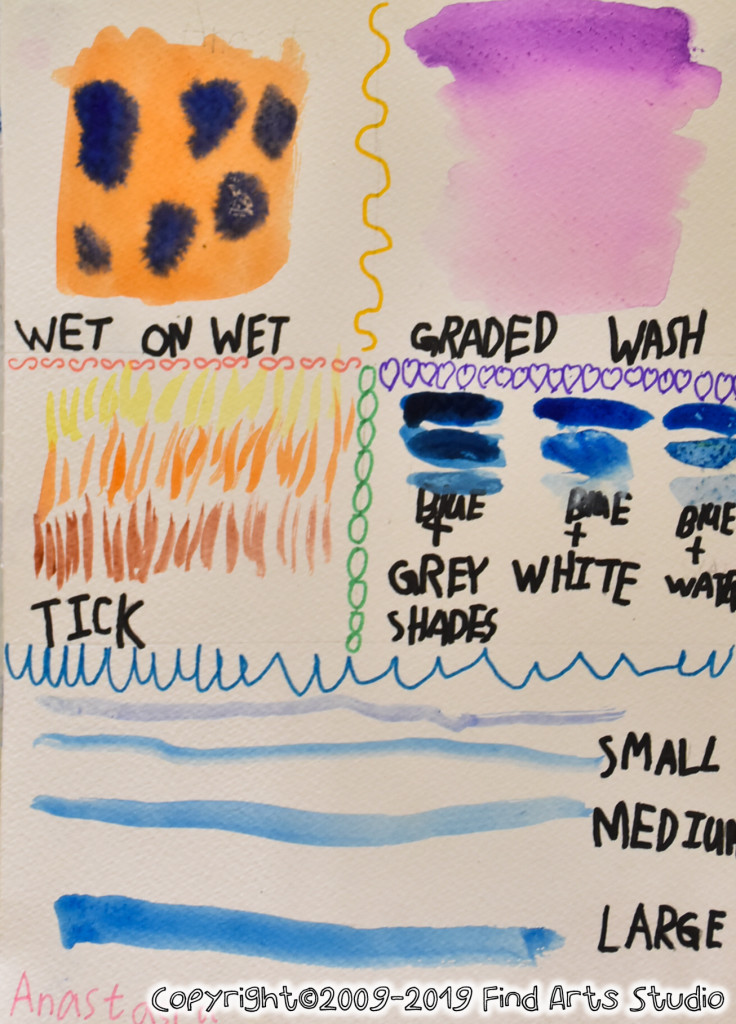 WET ON WET
GRADED WASH
TICK
BLUE
+
GREY
SHADES
BLUE
+
WHITE
BLUE
+
SMALL
MEDIUM
LARGE
Copyright©2009-2019 Find Arts Studio